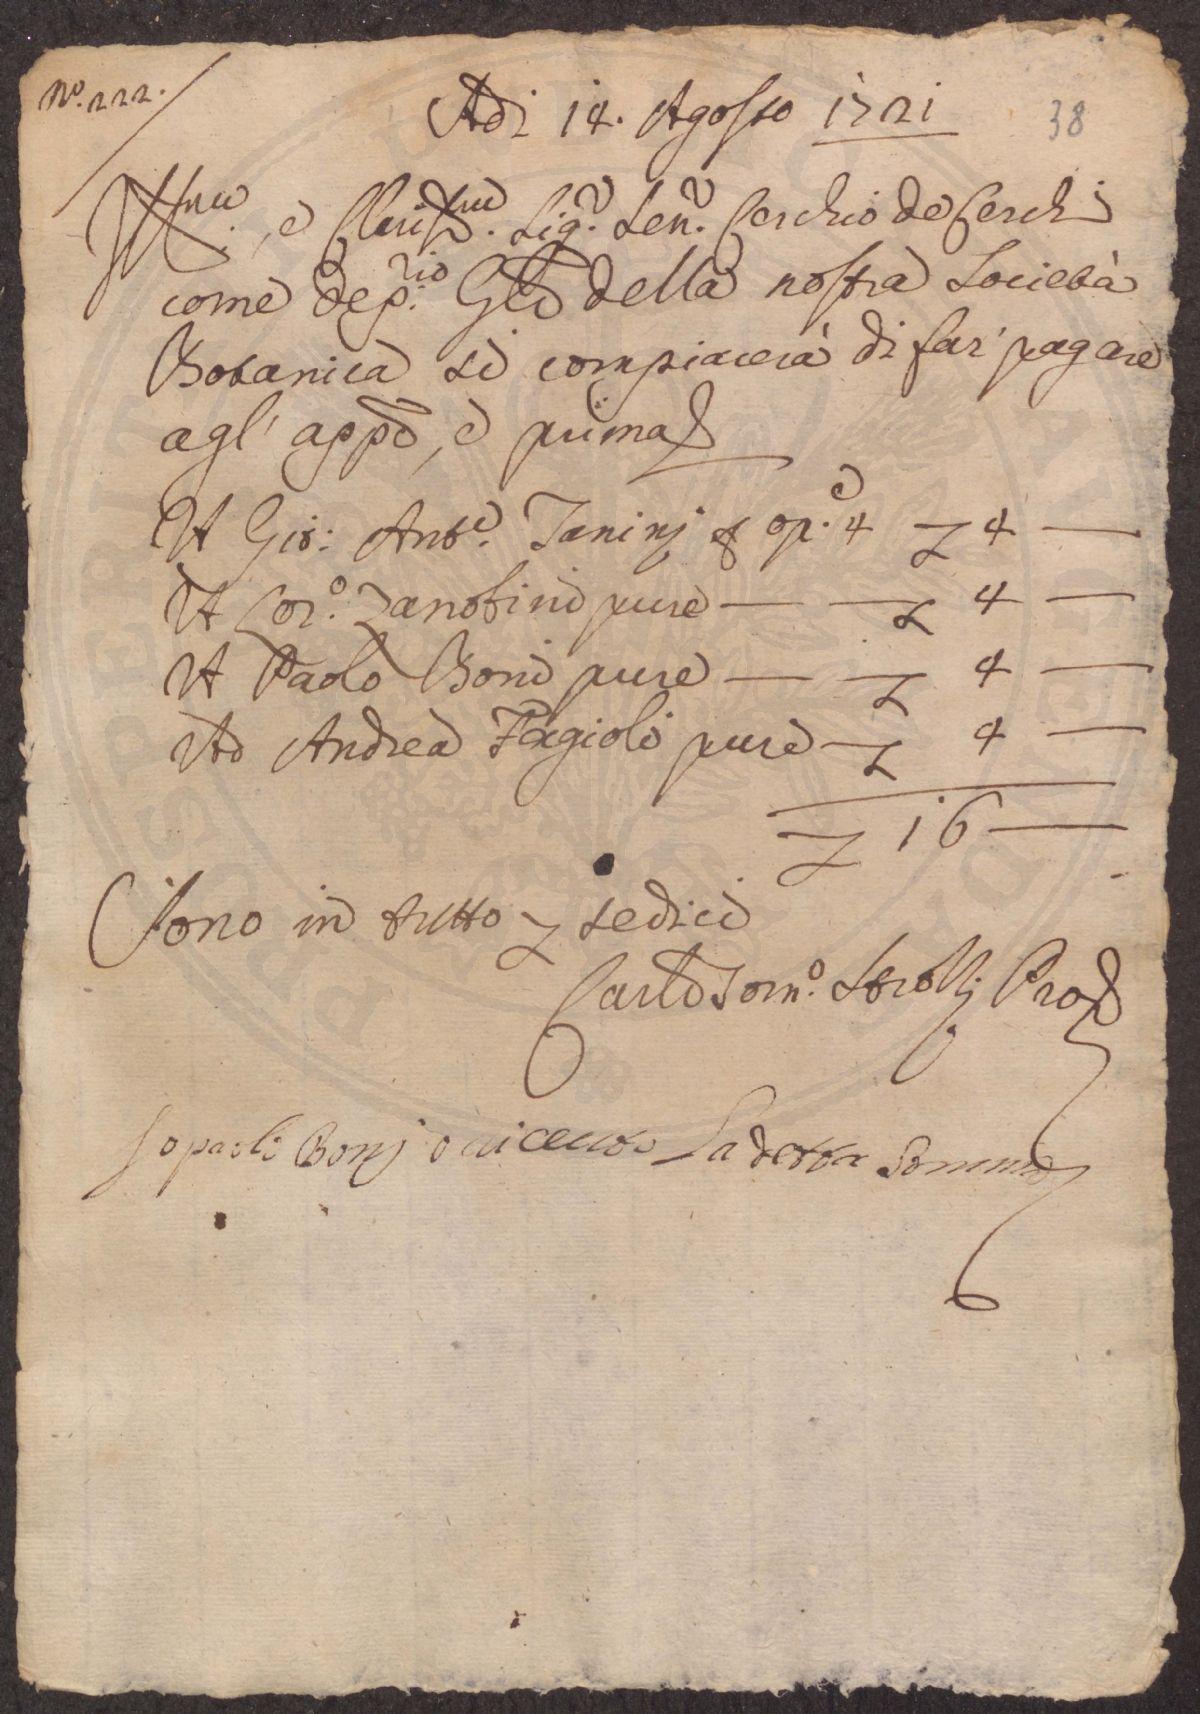 N.º 222.
Adi 14. Agosto 1721
38
Ill.mo, e Claris.mo Sig.r Sen.r Cerchio de Cerchi
come dep.rio Gle della nostra Società
Botanica si compiacerà di far pagare
agl' app.e, e prima
A Gio: Ant.o Tanini p op.e 4 £ 4 —
A Lor.o Zanobini pure — £ 4 —
A Paolo Boni pure — £ 4 —
Ad Andrea Fagioli pure £ 4 —
£ 16 —
Sono in tutto £ sedici
Carlo Tom.o
Io paolo Bonj o riceuto La detta Somma